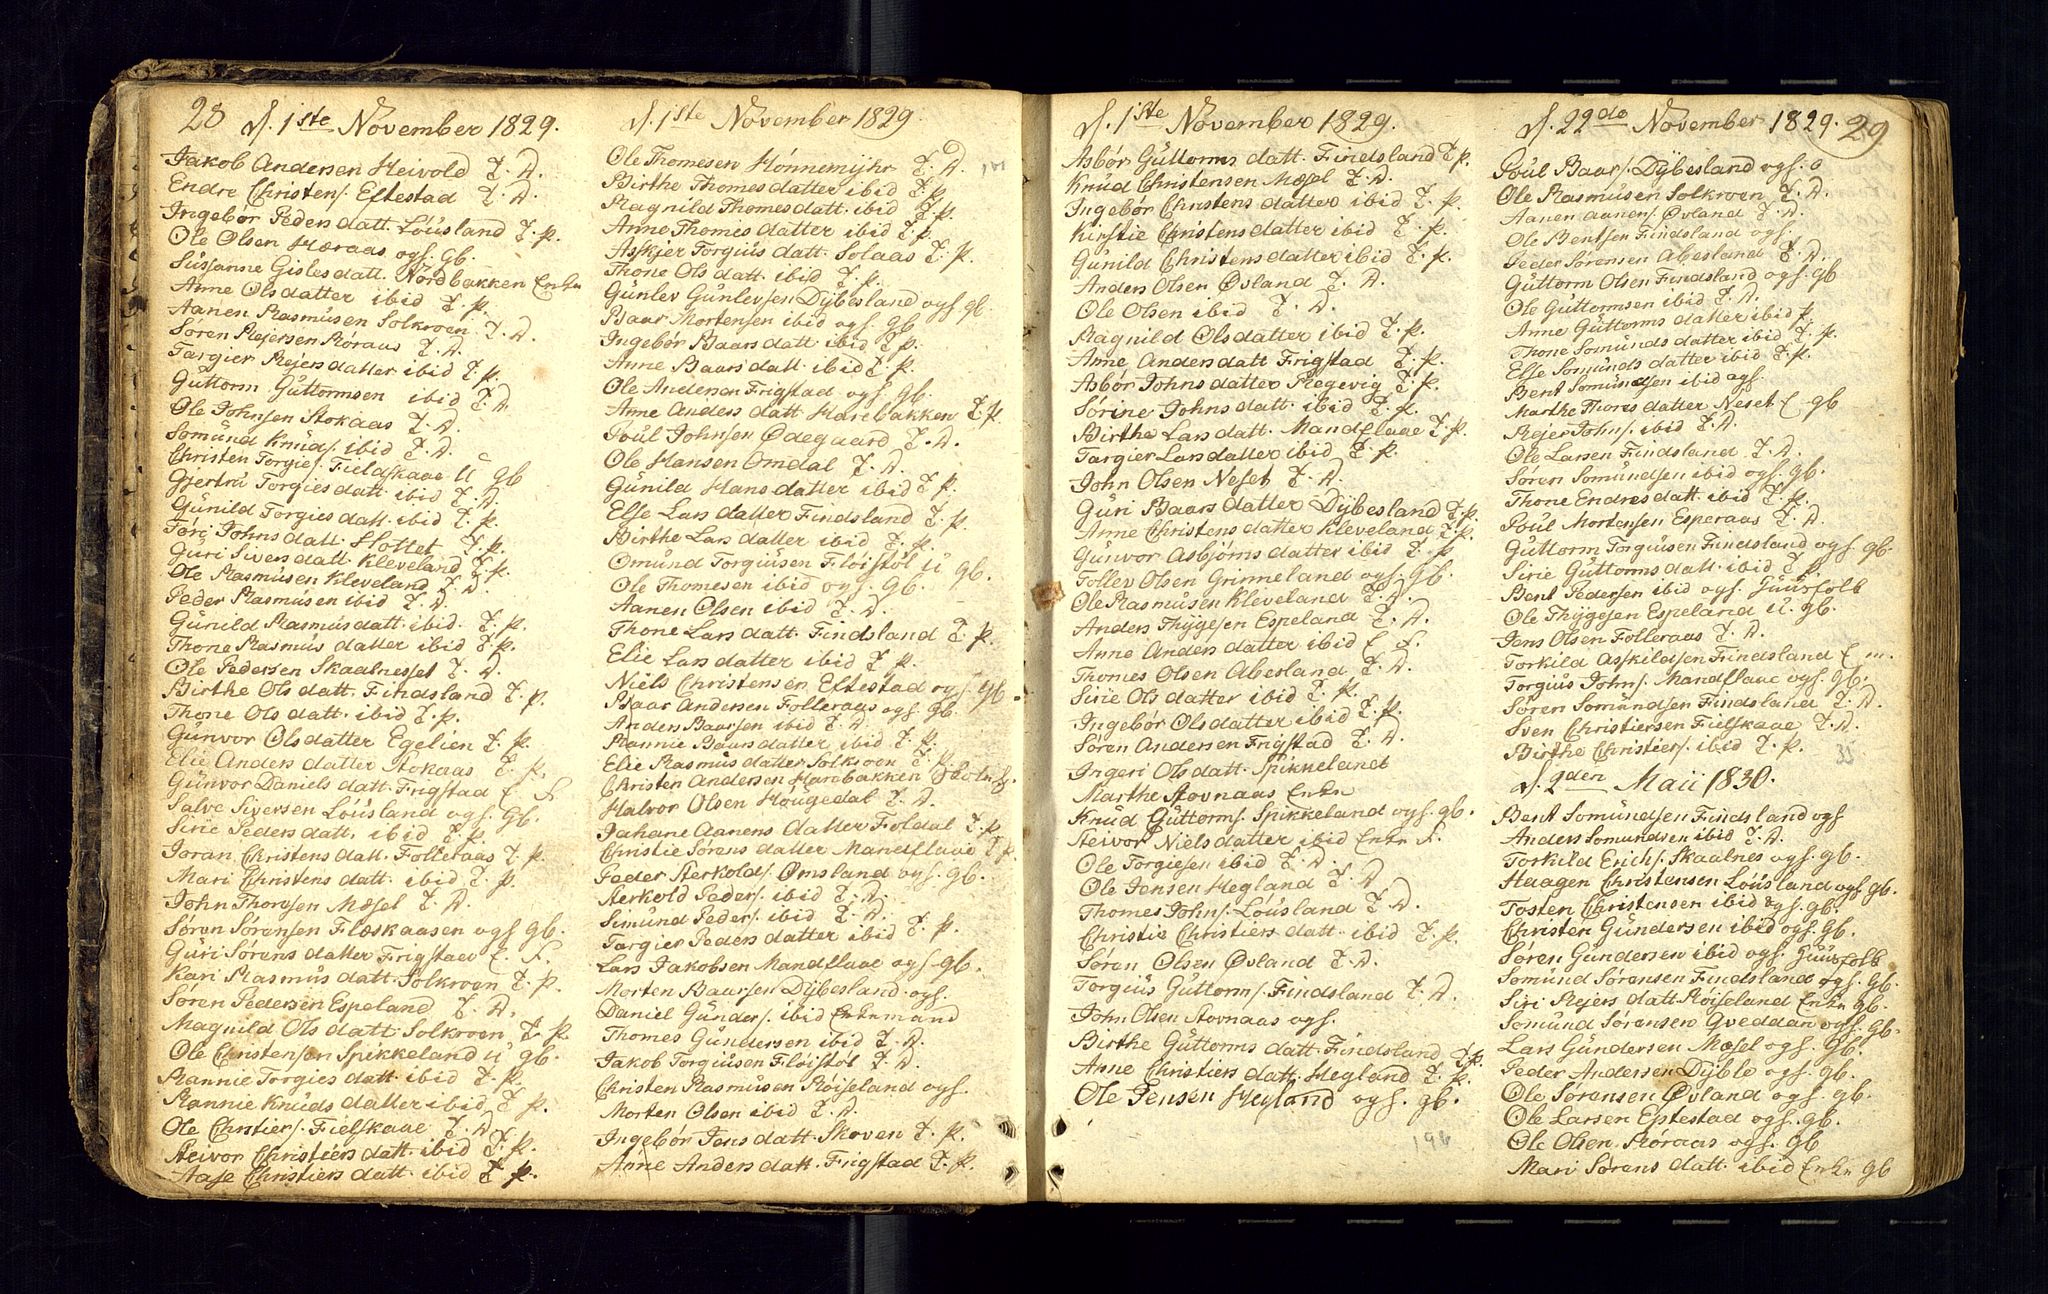 28
d. 1ste November 1829.
Jakob Andersen Heivold T. D.
Endre Christens. Eftestad T. D.
Ingebor Peders datt. Löusland T. p.
Ole Olsen Hæraas ogs. gb.
Sussanne Gislesdatt. Nordbakken Enke
Anne Olsdatter ibid T. p.
Aanen Rasmusen Solkroen T. D.
Søren Rejersen Röraas T. D.
Targier Rejersdatter ibid T. p.
Guttorm Guttormsen ibid T. D.
Ole Johnsen Stokaas T. D.
Somund Knuds. ibid T. D.
Christen Torgies. Fielskaae U gb
Gjertru Torgiesdatt. ibid T. D.
Gunild Torgiesdatt. ibid T. p.
Tore Johnsdatt. Slottet T. p.
Guri Siversdatt. Kleveland T. p.
Ole Rasmusen Kleveland T. D.
Peder Rasmusen ibid T. D.
Gunild Rasmusdatt. ibid. T. p.
Thone Rasmus datter ibid T. p.
Ole Pedersen Skaalnesset T. D.
Birthe Olsdatt. Findsland T. p.
Thone Olsdatt. ibid T. p.
Gunvor Olsdatter Egelien T. p.
Elie Anders datter Stokaas T. p.
Gunvor Daniels datt. Frigstad E. F.
Salve Siversen Löusland ogs. gb.
Sirie Peders datt. ibid T. p.
Joran Christens datt. Folleraas T. p.
Mari Christens datt. ibid T. p.
John Thoresen Mæsel T. D.
Søren Sørensen Flæskaasen ogs gb.
Guri Sørens datter Frigstad E. F.
Kari Rasmus datt. Solkroen T. p.
Søren Pedersen Espeland T. D.
Magnild Ols datt. Solkroen T. p.
Ole Christensen Spikkeland u gb.
Rannie Torgies datt. ibid T. p.
Rannie Knuds datter ibid T. p.
Ole Christiers. Fielskaae T. D.
Steivor Christiers datt. ibid T. p.
Aase Christiers datt. ibid T. p.
d. 1ste November 1829.
Ole Thomesen Hønnemyhr T. D.
Birthe Thomesdatter ibid T. p.
Ragnild Thomesdatt. ibid T. p.
Anne Thomes datter ibid T. p.
Askjer Torgius datt. Solaas T. p.
Thone Ols datt. ibid T. p.
Gunlev Gunlevsen Dybesland ogs gb.
Baar Mortensen ibid ogs. gb
Ingebor Baarsdatt. ibid T. p.
Anne Baars datt. ibid T. p.
Ole Andersen Frigstad ogs gb.
Anne Anders datt. Harebakken T. p.
Poul Johnsen Ødegaard T. D.
Ole Hansen Omdal T. D.
Gunild Hans datter ibid T. p.
Else Lars datter Findsland T. p.
Birthe Lars datter ibid T. p.
Omund Torgiusen Fløistöl u gb.
Ole Thomesen ibid ogs. gb.
Aanen Olsen ibid T. D.
Thone Lars datt. Findsland T. p.
Elie Lars datter ibid T. p.
Niels Christensen Eftestad ogs. gb
Baar Andersen Folleraas ogs. gb.
Anders Baarsen ibid T. D.
Rannie Baarsdatter ibid T. p.
Elie Rasmus datter Solkroen T. p.
Christen Andersen Harebakken
Halvor Olsen Hougedal T. D.
Jahane Aanens datter Foldal T. p.
Christie Sørens datter Mandflaae T. p.
Peder Sterkolds. Omsland ogs. gb.
Sterkold Peders. ibid T. D.
Simund Peders. ibid T. D.
Targier Peders datter ibid T. p.
Lars Jakobsen Mandflaae ogs gb.
Morten Baarsen Dybesland ogs.
Daniel Gunders. ibid Enkemand
Thomes Gundersen ibid T. D.
Jakob Torgiusen Fløistöl T. D.
Christen Rasmusen Röiseland ogs.
Morten Olsen ibid T. D.
Ingebor Jens datt. Skoven T. p.
Anne Anders datt. Frigstad T. p.
d. 1ste November 1829.
Asbør Guttorms datt. Findsland T. p.
Knud Christensen Mæsel T. D.
Ingebor Christens datter ibid T. p.
Kirstie Christens datter ibid T. p.
Gunild Christens datter ibid T. p.
Anders Olsen Øvland T. D.
Ole Olsen ibid T. D.
Ragnild Olsdatter ibid T. p.
Anne Anders datt Frigstad T. p.
Asbør Johns datter Regevig T. p.
Sørine Johns datt. ibid T. p.
Birthe Lars datt. Mandflaae T. p.
Targier Lars datter ibid T. p.
John Olsen Neset T. D.
Guri Baars datter Dybesland T. p.
Anne Christens datter Kleveland T. p.
Gunvor Asbjørns datter ibid T. p.
Tollev Olsen Grimmeland ogs. gb.
Ole Rasmusen Kleveland T. D.
Anders Thygesen Espeland T. D.
Anne Anders datter ibid E. F.
Thomes Olsen Abesland T. D.
Sirie Ols datter ibid T. p.
Ingebor Olsdatter ibid T. p.
Søren Andersen Frigstad T. D.
Ingeri Olsdatt. Spikkeland
Marthe Stovnaas Enke
Knud Guttorms. Spikkeland ogs. gb.
Steivor Niels datter ibid Enke F.
Ole Torgiesen ibid T. D.
Ole Jensen Hegland T. D
Thomes Johns. Löusland T. D.
Christie Christiers datt. ibid T. p.
Søren Olsen Øvland T. D.
Torgius Guttorms. Findsland T. D.
John Olsen Stovnaas ogs.
Birthe Guttorms datt. Findsland T. p.
Anne Christiers datt. Hegland T. p.
Ole Jensen Hegland ogs. gb.
196
d. 22do November 1829.
29
Poul Baars. Dybesland ogs.
Ole Rasmusen Solkroen T. D.
Aanen Aanens. Øvland T. D.
Ole Bentsen Findsland ogs.
Peder Sørensen Abesland T. D.
Guttorm Olsen Findsland ogs. gb
Ole Guttormsen ibid T. D.
Anne Guttorms datter ibid p.
Thone Somunds datter ibid T. p.
Else Somunds datter ibid T. p.
Bent Somundsen ibid ogs.
Marthe Thores datter Neset E gb
Rejer Johns. ibid T. D.
Ole Larsen Findsland T. D.
Søren Somundsen ibid ogs. gb.
Thone Endres datt. ibid T. p.
Poul Mortensen Esperaas T. D.
Guttorm Torgiusen Findsland ogs. gb.
Sirie Guttorms datt. ibid T. p.
Bent Pedersen ibid ogs. Huusfolk
Ole Thygesen Espeland u. gb.
Jens Olsen Folleraas T. D.
Torkild Askildsen Findsland E m.
Torgius Johns. Mandflaae ogs. gb.
Søren Somundsen Findsland T. D.
Sven Christiersen Fielskaae T. D.
Birthe Christiers. ibid T. p.
33
d. 2den Maii 1830.
Bent Somundsen Findsland ogs
Anders Somundsen ibid T. D.
Torkild Erichs. Skaalnes ogs. gb.
Haagen Christensen Löusland ogs gb.
Tosten Christensen ibid ogs. gb.
Christen Gundersen ibid ogs. gb.
Søren Gundersen ibid ogs. Huusfolk
Somund Sørensen Findsland ogs. gb.
Siri Rejers datt. Röiseland Enke gb.
Somund Sørensen Qveddan ogs. gb.
Lars Gundersen Mæsel ogs. gb.
Peder Andersen Dyble ogs. gb.
Ole Sørensen Øvland ogs. gb.
Ole Larsen Eftestad ogs. gb.
Ole Olsen Röraas ogs. gb
Mari Sørens datt. ibid Enke gb